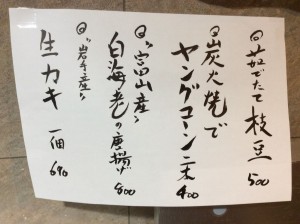 ◎茹でたて枝豆 500
◎炭火焼で
ヤングコーン二本 400
◎"富山産"
白海老の唐揚げ 800
◎"岩手産"
生カキ 一個 690